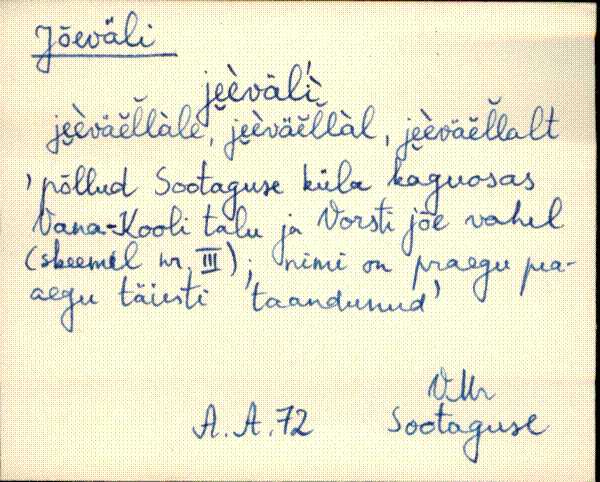 Jõeväli
je̮èvälì
je̮èväĕl̆làle, je̮èväĕl̆làl, je̮èväĕl̆lalt
'põllud Sootaguse küla kaguosas
Vana-Kooli talu ja Vorsti jõe vahel
(skeemil nr. III); nimi on praegu pea-
aegu täiesti taandunud'
VMr
A. A. 72 Sootaguse